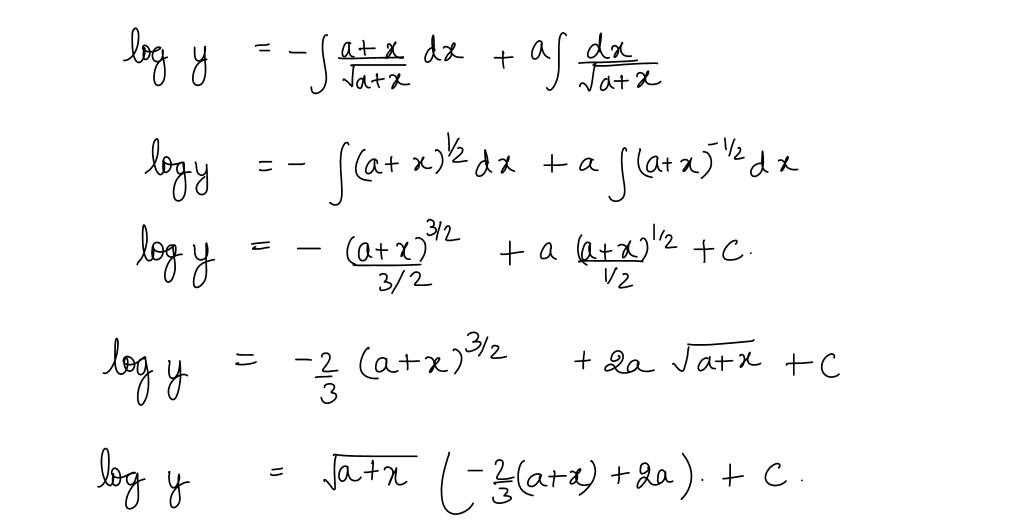 log y = - ∫ (a+x)/√(a+x) dx + a ∫ dx/√(a+x)
log y = - ∫ (a+x)^1/2 dx + a ∫ (a+x)^-1/2 dx
log y = - (a+x)^3/2 / 3/2 + a (a+x)^1/2 / 1/2 + c.
log y = -2/3 (a+x)^3/2 + 2a √(a+x) + C
log y = √(a+x) (-2/3 (a+x) + 2a). + C.